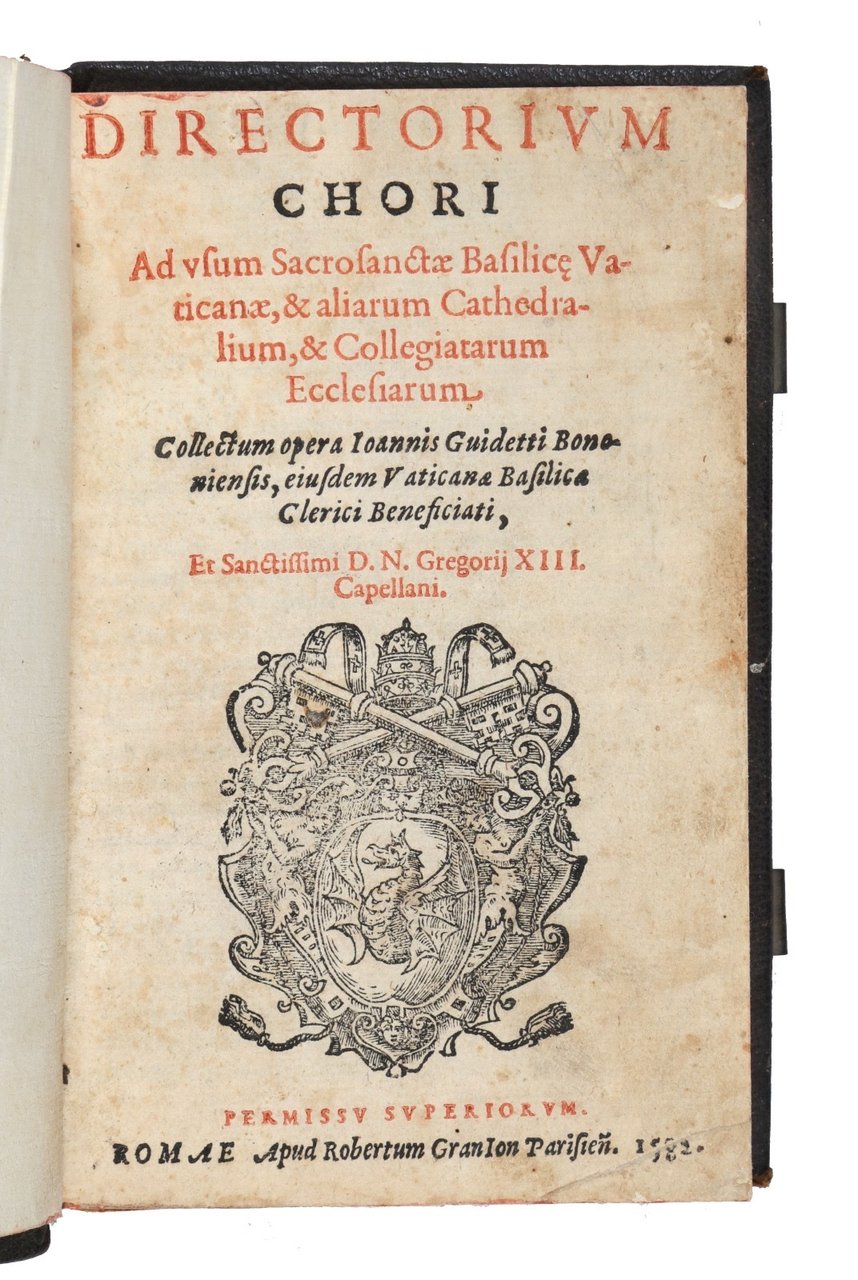 DIRECTORIVM
CHORI
Ad vſum Sacroſanctæ Baſilicę Va-
ticanæ, & aliarum Cathedra-
lium, & Collegiatarum
Eccleſiarum
Collectum opera Ioannis Guidetti Bono-
nienſis, eiuſdem Vaticanæ Baſilicæ
Clerici Beneficiati,
Et Sanctiſſimi D. N. Gregorij XIII.
Capellani.
PERMISSV SVPERIORVM.
ROMAE Apud Robertum GranIon Pariſien̄. 1582.